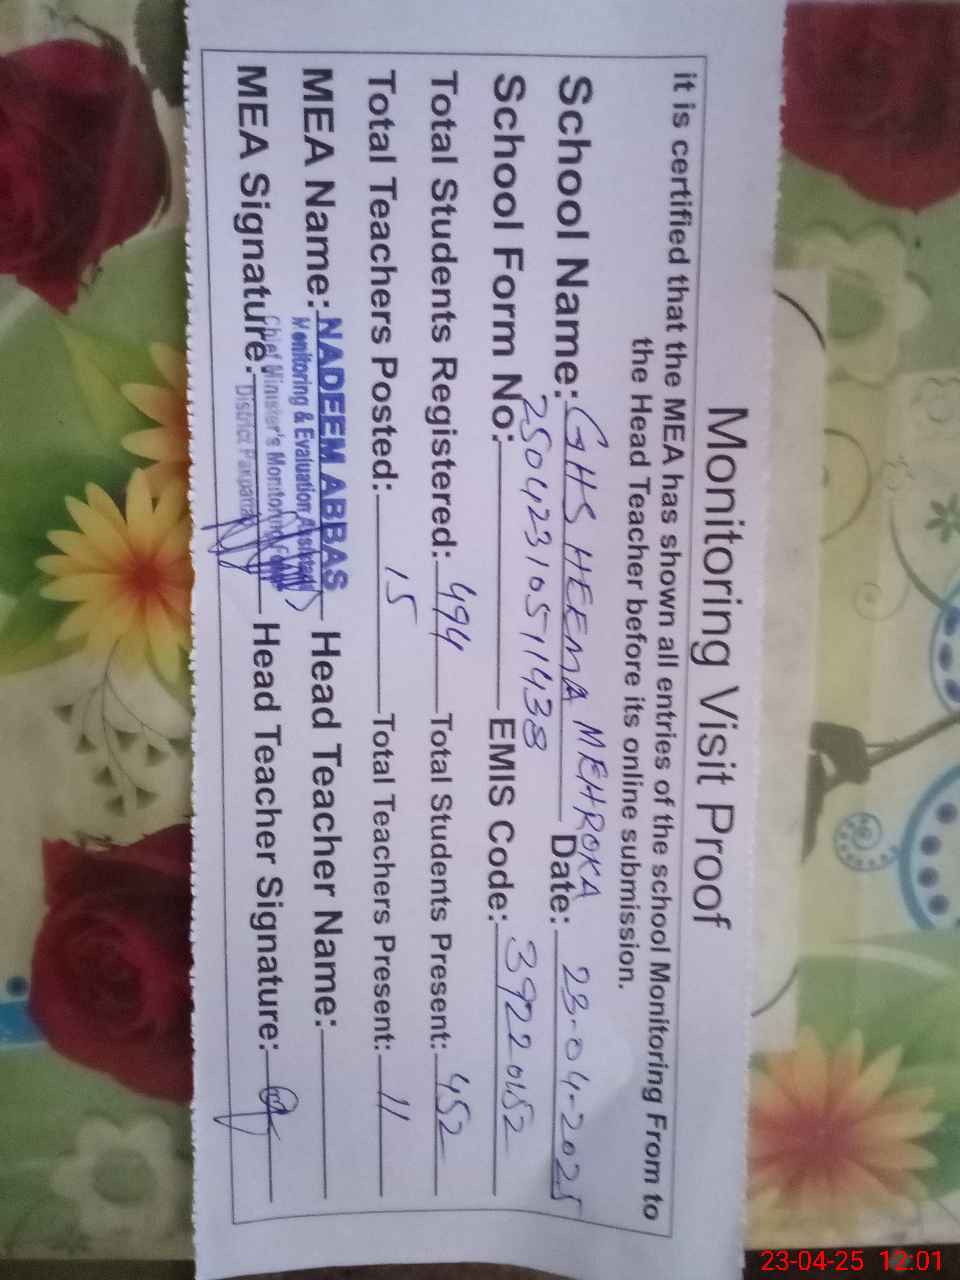 Monitoring Visit Proof
it is certified that the MEA has shown all entries of the school Monitoring From to
the Head Teacher before its online submission.
School Name: GHS HEEMA MEHROKA Date: 23-04-2025
School Form No: 25042310511438 EMIS Code: 39220152
Total Students Registered: 494 Total Students Present: 452
Total Teachers Posted: 15 Total Teachers Present: 11
MEA Name: NADEEM ABBAS Head Teacher Name:
Monitoring & Evaluation Assistant
Chief Minister's Monitoring Force
MEA Signature: District Pakpattan Head Teacher Signature:
23-04-25 12:01